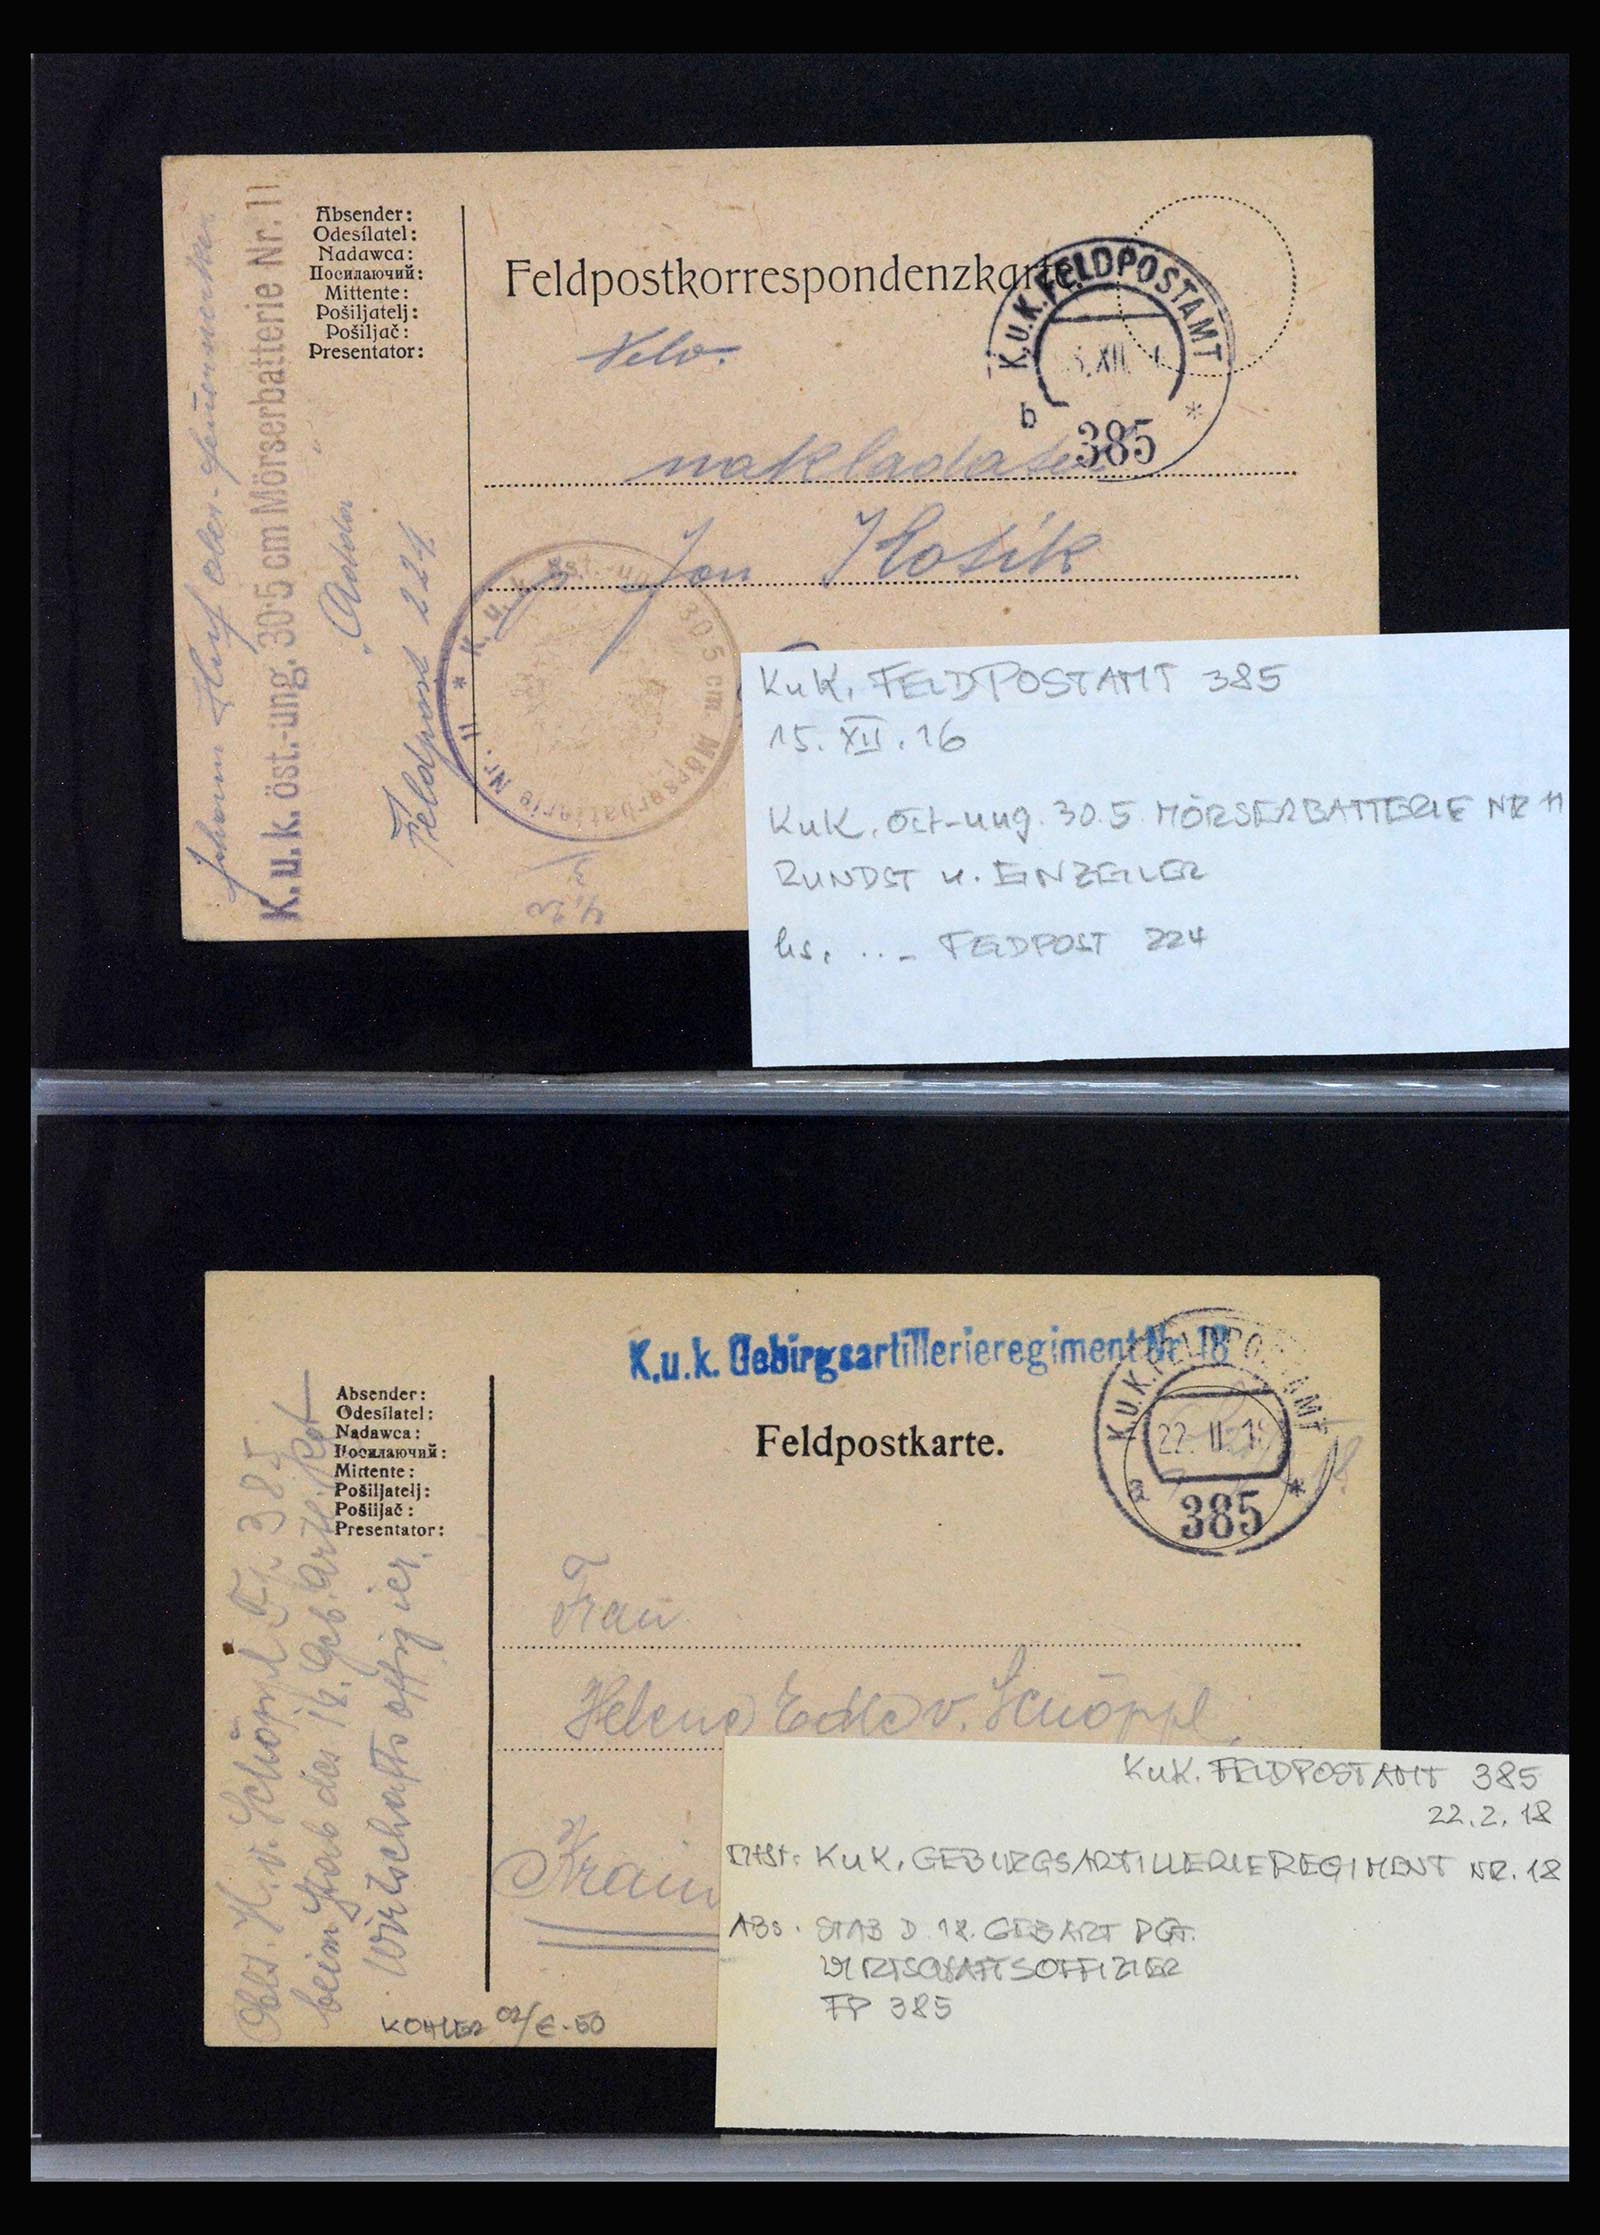 Absender:
Odesílatel:
Nadawca:
Посилаючий:
Mittente:
Pošiljatelj:
Pošiljač:
Presentator:
Feldpostkorrespondenzkarte
K.u.K. FELDPOSTAMT
XII.
b *
385
Jan Kotík
Johann
K.u.k. öst.-ung. 30·5 cm Mörserbatterie Nr. 11
Feldpost 224
* K. u. k. öst.-ung. 30·5 cm. Mörserbatterie Nr. 11
KuK. FELDPOSTAMT 385
15. XII. 16
KuK. öst-ung. 30.5. MÖRSERBATTERIE NR 11
RUNDST u. EINZEILER
hs. ..- FELDPOST 224
K.u.k. Gebirgsartillerieregiment Nr. 18
Absender:
Odesílatel:
Nadawca:
Посилаючий:
Mittente:
Pošiljatelj:
Pošiljač:
Presentator:
Feldpostkarte.
K.u.K. FELDPOSTAMT
22. II. 18
a *
385
Frau
Helene Edle v. Schöppl
Krain
H. v. Schöppl F.P. 385
beim Stab des 18. Geb. Art. Rgt
Wirtschaftsoffizier.
KOHLER 02/ €-50
KuK. FELDPOSTAMT 385
22.2.18
KuK. GEBIRGSARTILLERIEREGIMENT NR. 18
ABS. STAB D. 18. GEB ART RGT.
WIRTSCHAFTSOFFIZIER
FP 385